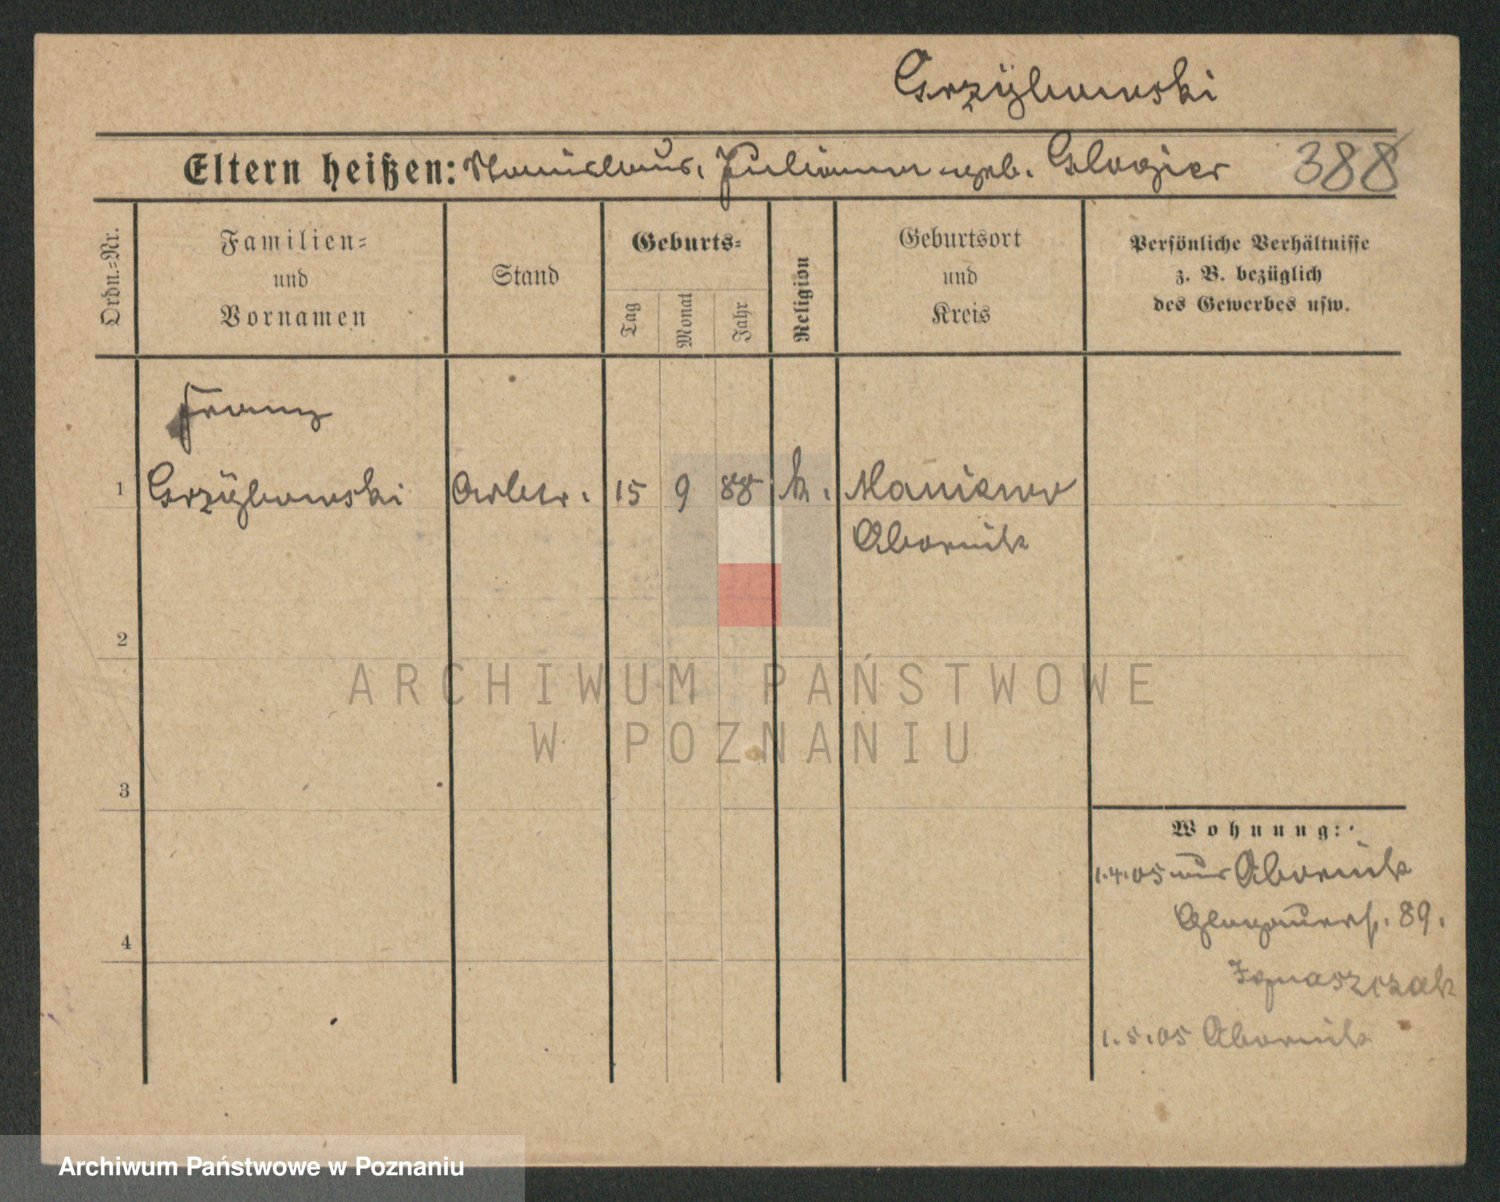 Grzÿbowski
Eltern heißen: Stanislaus, Julianna geb. Glogier 388
Ordn.=Nr.
Familien=
und
Vornamen
Stand
Geburts=
Tag
Monat
Jahr
Religion
Geburtsort
und
Kreis
Persönliche Verhältnisse
z. B. bezüglich
des Gewerbes usw.
Franz
1 Grzÿbowski Arbtr. 15 9 88 k. Maniewo
Obornik
2
3
4
Wohnung:
1.4.05 aus Obornik
Glogauerstr. 89.
Ignaszczak
1.5.05 Obornik
ARCHIWUM PAŃSTWOWE
W POZNANIU
Archiwum Państwowe w Poznaniu